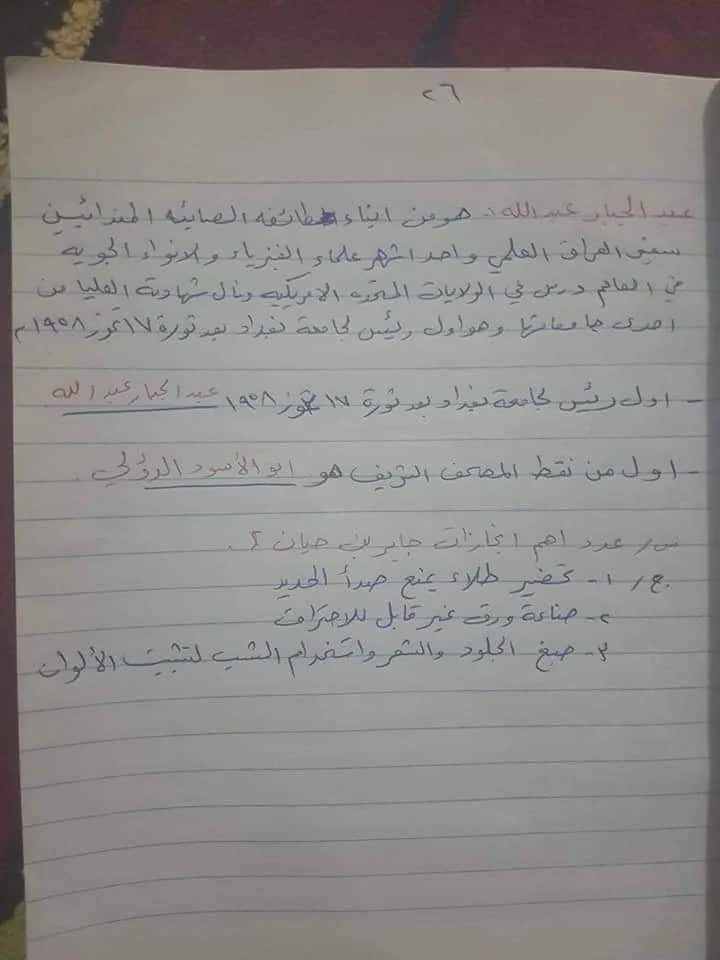 ٢٦
عبد الجبار عبد الله : هو من ابناء طائفه الصابئه المندائيين
العراق العلمي واحد اشهر علماء الفيزياء والانواء الجويه
في العالم درس في الولايات المتحده الامريكيه ونال شهادته العليا من
احدى جامعاتها وهو اول رئيس لجامعة بغداد بعد ثورة ١٧ تموز ١٩٥٨م
- اول رئيس لجامعة بغداد بعد ثورة ١٧ تموز ١٩٥٨ عبد الجبار عبد الله
- اول من نقط المصحف الشريف هو ابو الأسود الدؤلي .
س/ عدد اهم انجازات جابر بن حيان ؟.
ج/ ١- تحضير طلاء يمنع صدأ الحديد
٢- صناعة ورق غير قابل للاحتراق
٣- صبغ الجلود والشعر واستخدام الشب لتثبيت الألوان